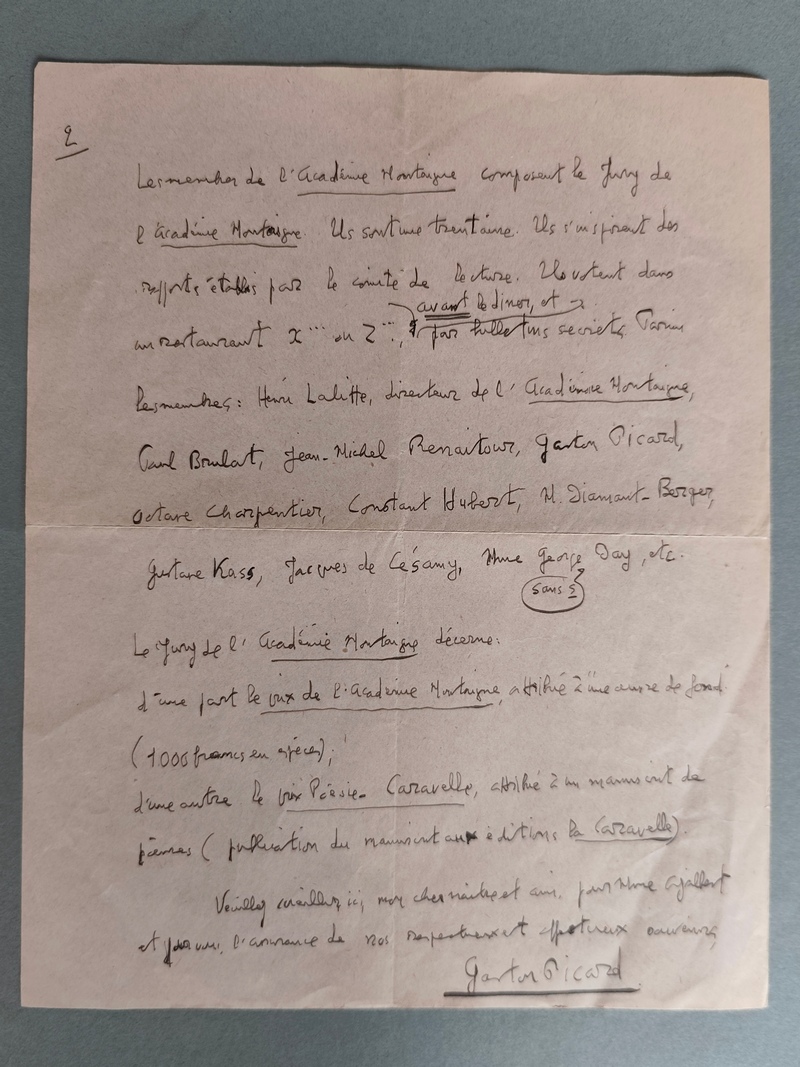 2
Les membres de l'Académie Montaigne composent le Jury de
l'Académie Montaigne. Ils sont une trentaine. Ils s'inspirent des
rapports établis par le comité de lecture. Ils votent dans
avant le diner, et
un restaurant X... ou Z..., par bulletins secrets. Parmi
les membres : Henri Lalitte, directeur de l'Académie Montaigne,
Paul Brulat, Jean-Michel Renaitour, Gaston Picard,
Octave Charpentier, Constant Hubert, M. Diamant-Berger,
Gustave Kass, Jacques de Césamy, Mme George Day, etc.
sans s
Le Jury de l'Académie Montaigne décerne :
d'une part le prix de l'Académie Montaigne, attribué à une œuvre de fond
(1000 francs en espèces);
d'une autre le prix Poésie-Caravelle, attribué à un manuscrit de
poèmes (publication du manuscrit aux éditions la Caravelle).
Veuillez cueillir ici, mon cher maître et ami, pour Mme Ajalbert
et pour vous, l'assurance de nos respectueux et affectueux souvenirs,
Gaston Picard